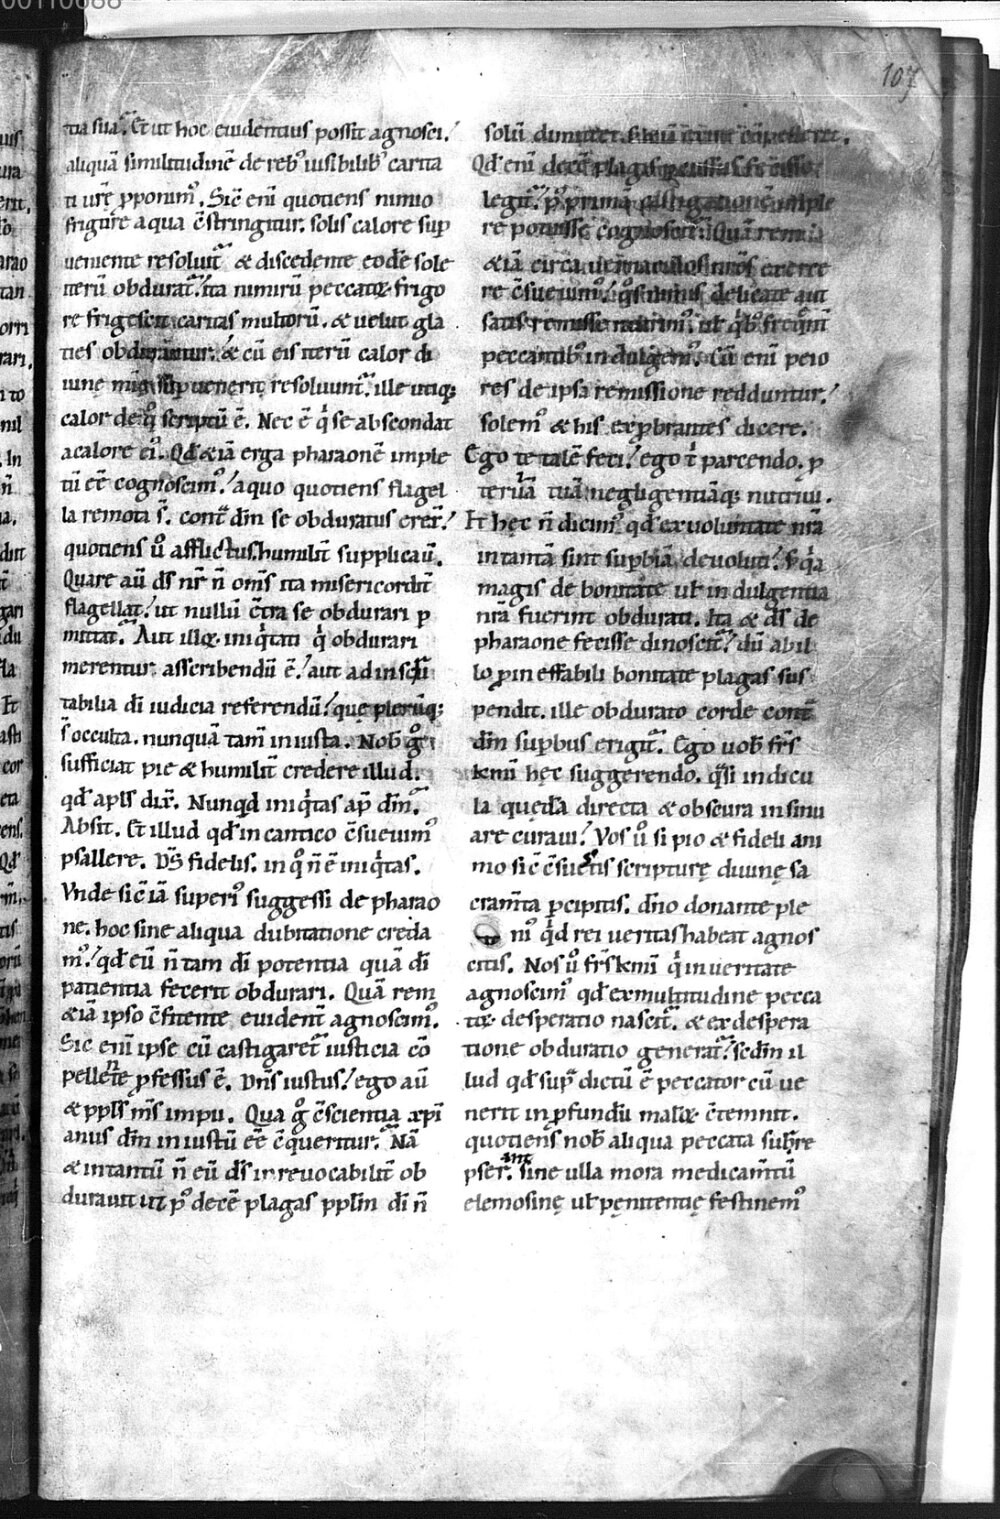 00110688
107
tia sua. Et ut hoc euidentius possit agnosci.
aliquā similitudinē de reb' uisibilib' carita
ti urę ̨pponim'. Sic̄ eni quotiens nimio
frigore aqua c̄stringitur. solis calore sup
ueniente resoluit̄ & discedente eodē sole
iterū obdurat̄. ita nimirū peccatoꝝ frigo
re frigescit caritas multorū. & uelut gla
ties obdurantur. & cū eis iterū calor di
uinę mīę supuenerit, resoluunt̄. ille utiq;
calor de q° scriptū ē. Nec ē qⁱ se abscondat
a calore ei'. Qd̄ & iā erga pharaonē imple
tū eē cognoscim'. a quo quotiens flagel
la remota s̄. cont̄ dm̄ se obduratus erex̄.
quotiens ū afflictus. humilit̄ supplicaū.
Quare aū ds̄ nr̄ n̄ om̄s ita misericordit̄
flagellat. ut nullū c̄tra se obdurari p
mittat. Aut illoꝝ iniqⁱtati qⁱ obdurari
merentur asscribendū ē. aut ad inscru
tabilia di iudicia referendū. quę plerūq;
s̄ occulta. nunquā tam̄ iniusta. Nob̄ g°
sufficiat pie & humilit̄ credere illud.
qd̄ apls̄ dix̄. Nunqd̄ iniqⁱtas ap̄ dm̄.
Absit. Et illud qd̄ in cantico c̄sueuim'
psallere. Ds̄ fidelis. in q° n̄ ē iniqⁱtas.
Vnde sic̄ iā superi' suggessi de pharao
ne. hoc sine aliqua dubitatione creda
m'. qd̄ eū n̄ tam di potentia quā di
patientia fecerit obdurari. Quā rem
& iā ipso c̄fitente euident̄ agnoscim'.
Sic eni ipse cū castigaret̄ iusticia cō
pellente ̨pfessus ē. Dn̄s iustus. ego aū
& ppls̄ ms̄ impii. Qua g° c̄scientia xpi
anus dm̄ iniustū eē c̄queritur. Nā
& in tantū n̄ eū ds̄ irreuocabilit̄ ob
durauit ut p' decē plagas pplm̄ di n̄
solū dimitteret
Qd̄ eni decē plagis
legit̄. p' prima castigationē imple
re potuisse cognoscit̄. Quā rem
& iā circa
re c̄sueuim'. delicate aut
satis remisse nutrim'. ul̄ qⁱb' freqn̄t̄
peccantib' indulgem'. Cū eni peio
res de ipsa remissione redduntur.
solem' & his exprobrantes dicere.
Ego te talē feci. ego tⁱ parcendo. p
teruiā tuā negligentiāq; nutriui.
Et hęc n̄ dicim' qd̄ ex uoluntate nr̄a
in tantā sint supbiā deuoluti. s̄ qⁱa
magis de bonitate ul̄ indulgentia
nr̄a fuerint obdurati. Ita & ds̄ de
pharaone fecisse dinoscit̄. dū ab il
lo p ineffabili bonitate plagas sus
pendit. ille obdurato corde cont̄
dm̄ supbus erigit̄. Ego uob̄ frs̄
kmi hęc suggerendo. qⁱsi indicu
la quęda directa & obscura insinu
are curaui. Vos ū si pio & fideli ani
mo sic̄ c̄suestis scripturę diuinę sa
cram̄ta pcipitis. dn̄o donante ple
ni' qⁱd rei ueritas habeat agnos
citis. Nos ū frs̄ kmi qⁱ in ueritate
agnoscim' qd̄ ex multitudine pecca
toꝝ desperatio nascit̄. & ex despera
tione obduratio generat̄. sedm̄ il
lud qd̄ sup̄ dictū ē peccator cū ue
nerit in pfundū maloꝝ c̄temnit.
quotiens nob̄ aliqua peccata subre
pser̄ int. sine ulla mora medicam̄tū
elemosinę ul̄ pęnitentię festinem'